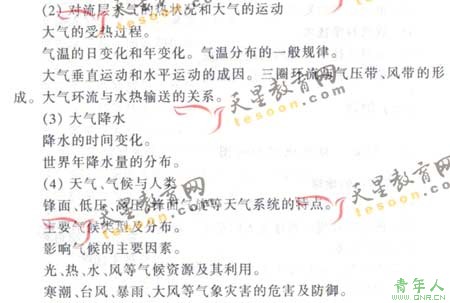 (2) 对流层大气的热状况和大气的运动
大气的受热过程。
气温的日变化和年变化。气温分布的一般规律。
大气垂直运动和水平运动的成因。三圈环流与气压带、风带的形
成。大气环流与水热输送的关系。
(3) 大气降水
降水的时间变化。
世界年降水量的分布。
(4) 天气、气候与人类
锋面、低压、高压、锋面气旋等天气系统的特点。
主要气候类型及分布。
影响气候的主要因素。
光、热、水、风等气候资源及其利用。
寒潮、台风、暴雨、大风等气象灾害的危害及防御。
天星教育网
tesoon.com
天星教育网
tesoon.com
天星教育网
tesoon.com
天星教育网
tesoon.com
青年人
www.QNR.CN